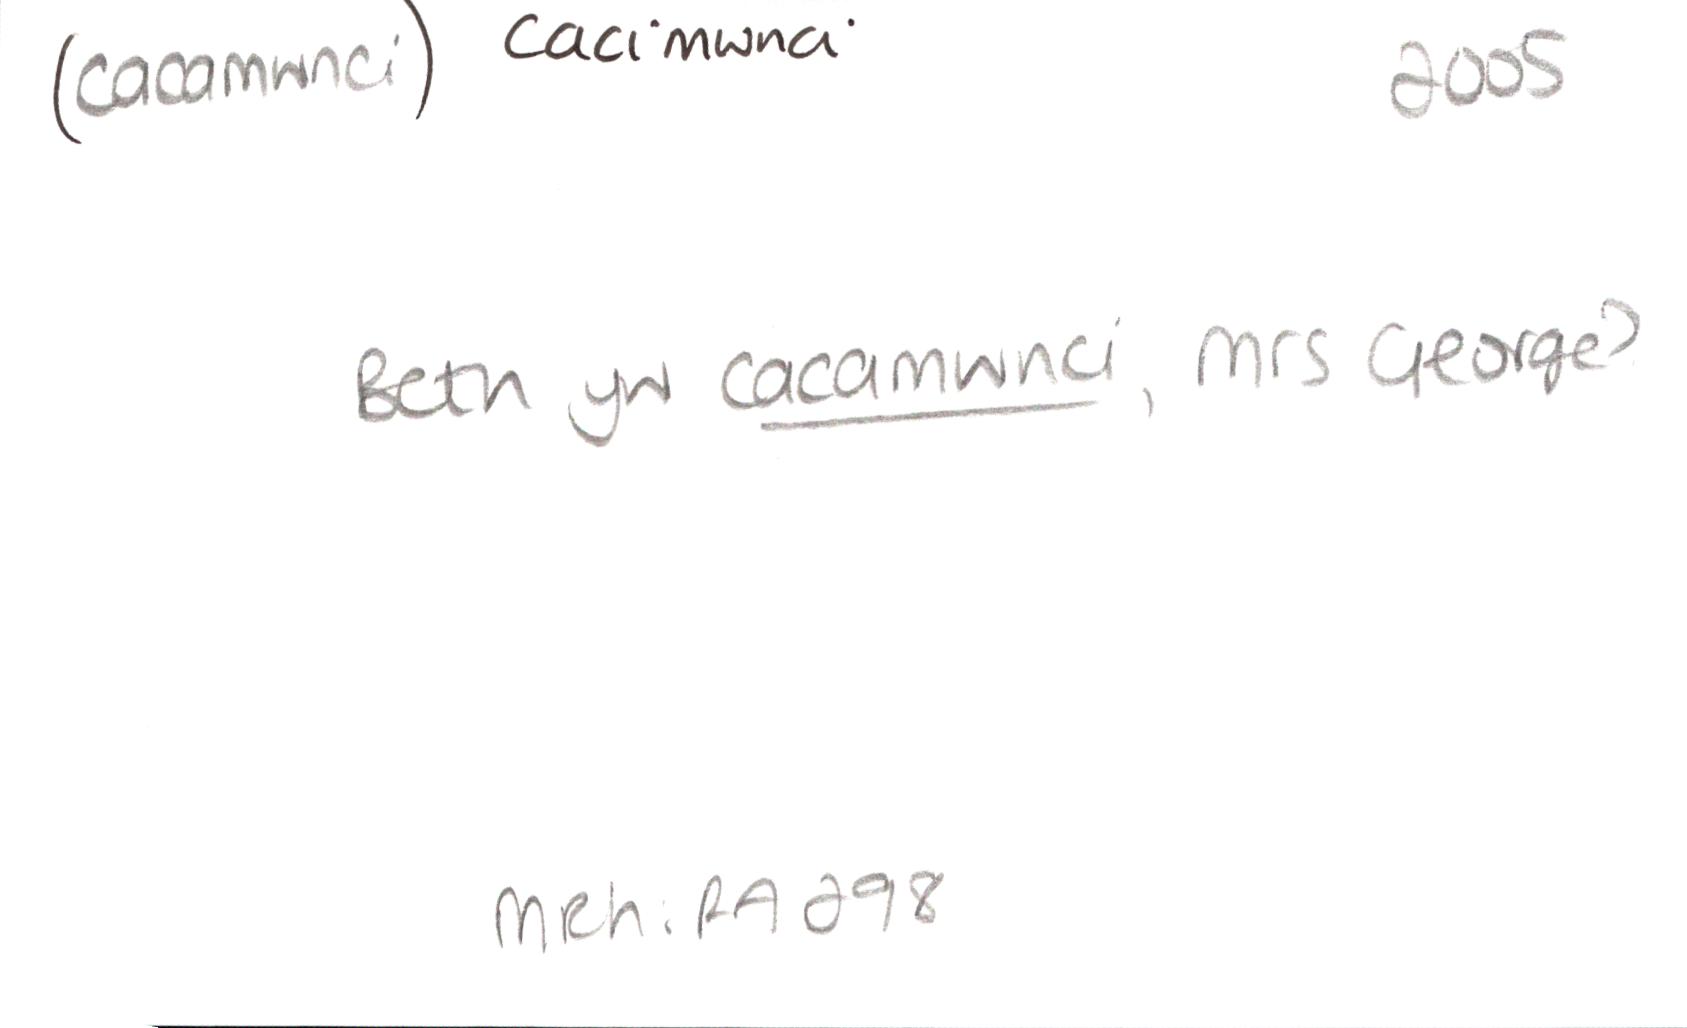 (cacamwnci) cacimwnci 2005
Beth yw cacamwnci, Mrs George?
MRh: RA 298